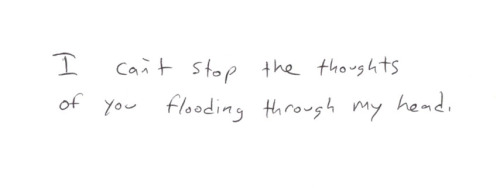 I can't stop the thoughts
of you flooding through my head.